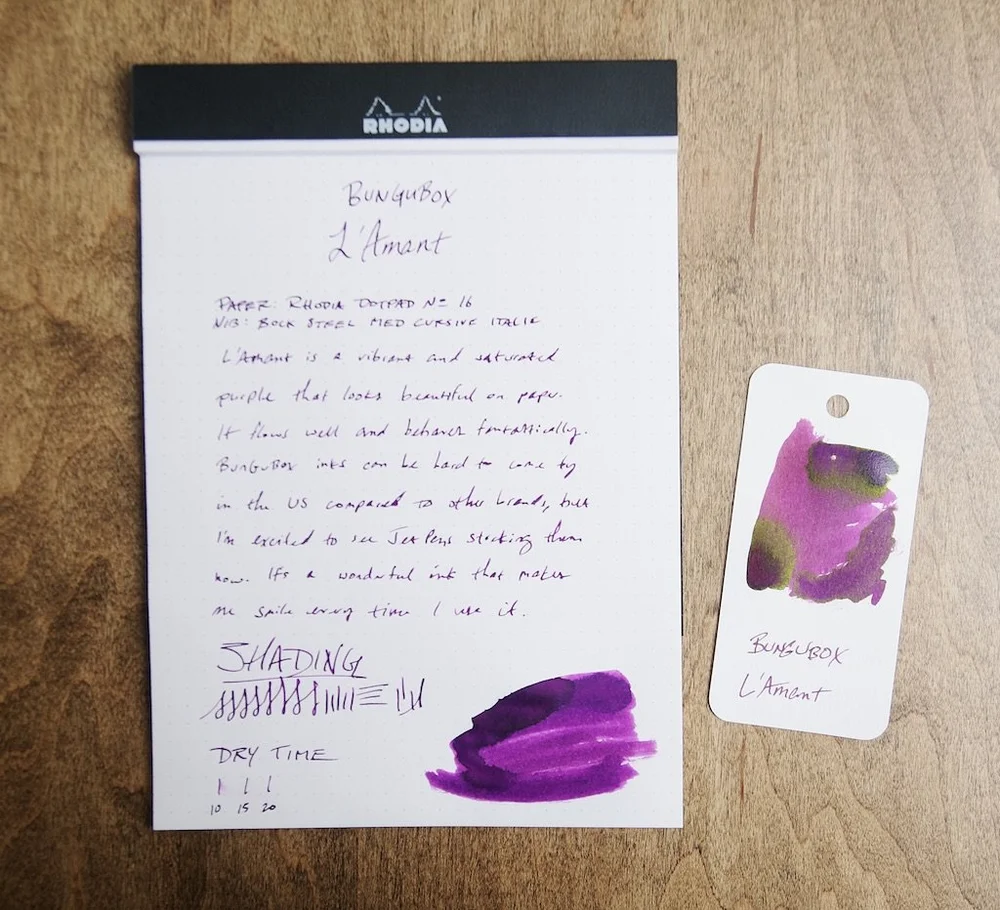 RHODIA
BUNGUBOX
L'Amant
PAPER: RHODIA DOTPAD Nº 16
NIB: BOCK STEEL MED CURSIVE ITALIC
L'Amant is a vibrant and saturated
purple that looks beautiful on paper.
It flows well and behaves fantastically.
BUNGUBOX inks can be hard to come by
in the US compared to other brands, but
I'm excited to see JetPens stocking them
now. It's a wonderful ink that makes
me smile every time I use it.
SHADING
DRY TIME
10 15 20
BUNGUBOX
L'Amant